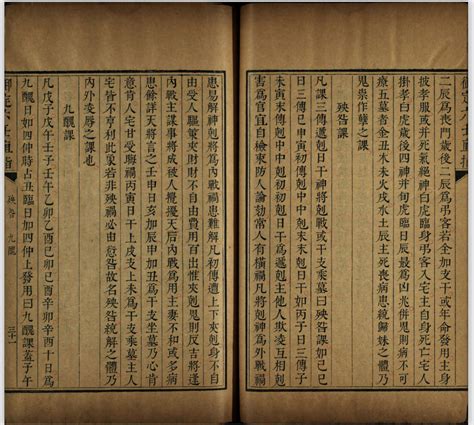 二辰為喪門歲後二辰為弔客若全加支干或年命發用主身
披孝服或年并死氣絕神曰虎臨身弔客入宅主身死亡宅人
掛孝白虎歲後四神并旬虎臨日辰最為凶兆併見則病不可
療五墓者金丑木未火戌水土辰主死喪病患統歸妹之體乃
鬼祟作孽之課也
殃咎課
凡課三傳遞剋日干神將剋戰或干支乘墓曰殃咎課如丙子
日三申寅初傳剋中中剋末末剋日干如丙子日三傳子
未寅末傳剋中中剋初初剋日為遞剋主他人欺凌互相剋
害為官宜自防人論劾常人有橫禍凡將剋神為外戰禍
患易解神剋將為內戰患難解凡初傳遭上下夾剋身不自
由受人驅策夾財財不自由費用了出惟夾剋鬼則反吉將逢
內戰主謀事將成被人攪擾天后內戰為用主妻不和或多病
患餘詳天將言之壬申日亥加辰申加丑為干支坐墓乃心肯
意肯人宅甘受昏晦丙寅日干上戌支上未為干支乘墓主人
宅皆不亨利此象若非殃禍必由愆咎故名殃咎統解之體乃
內外凌辱之課也
九醜課
凡戊子戊午壬子壬午乙卯乙酉己卯己酉辛卯辛酉十日為
九醜日如四仲時占丑臨日如四仲上發用曰九醜課蓋子午
御定六壬直指 殃咎 九醜 三十一